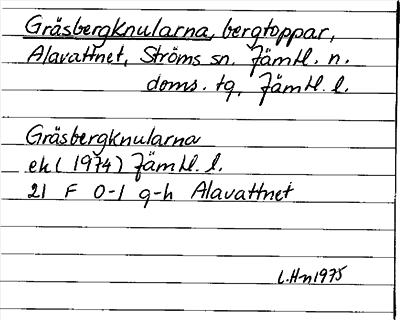 Gräsbergknularna, bergtoppar,
Alavattnet, Ströms sn. Jämtl. n.
doms. tg, Jämtl. l.
Gräsbergknularna
ek (1974) Jämtl. l.
21 F 0-1 g-h Alavattnet
L.Hn 1975